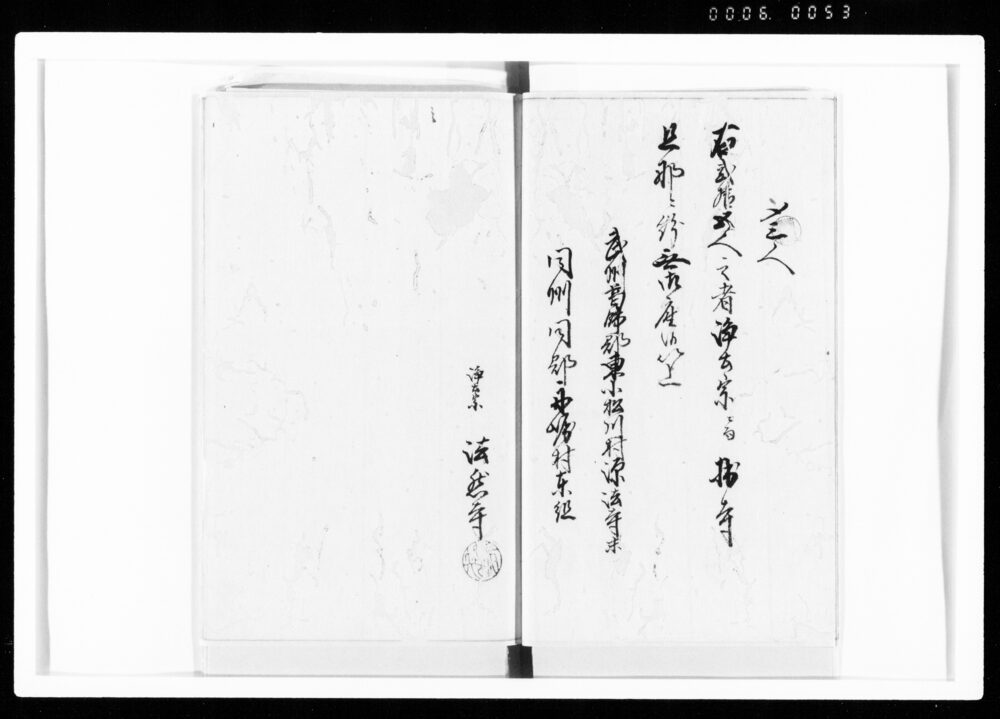 00.06. 0053
〆三人
右弐拾五人之者浄土宗ニ而拙寺
旦那ニ紛無御座候以上
武州葛飾郡東小松川村源法寺末
同州同郡舟堀村東組
浄土宗 法然寺